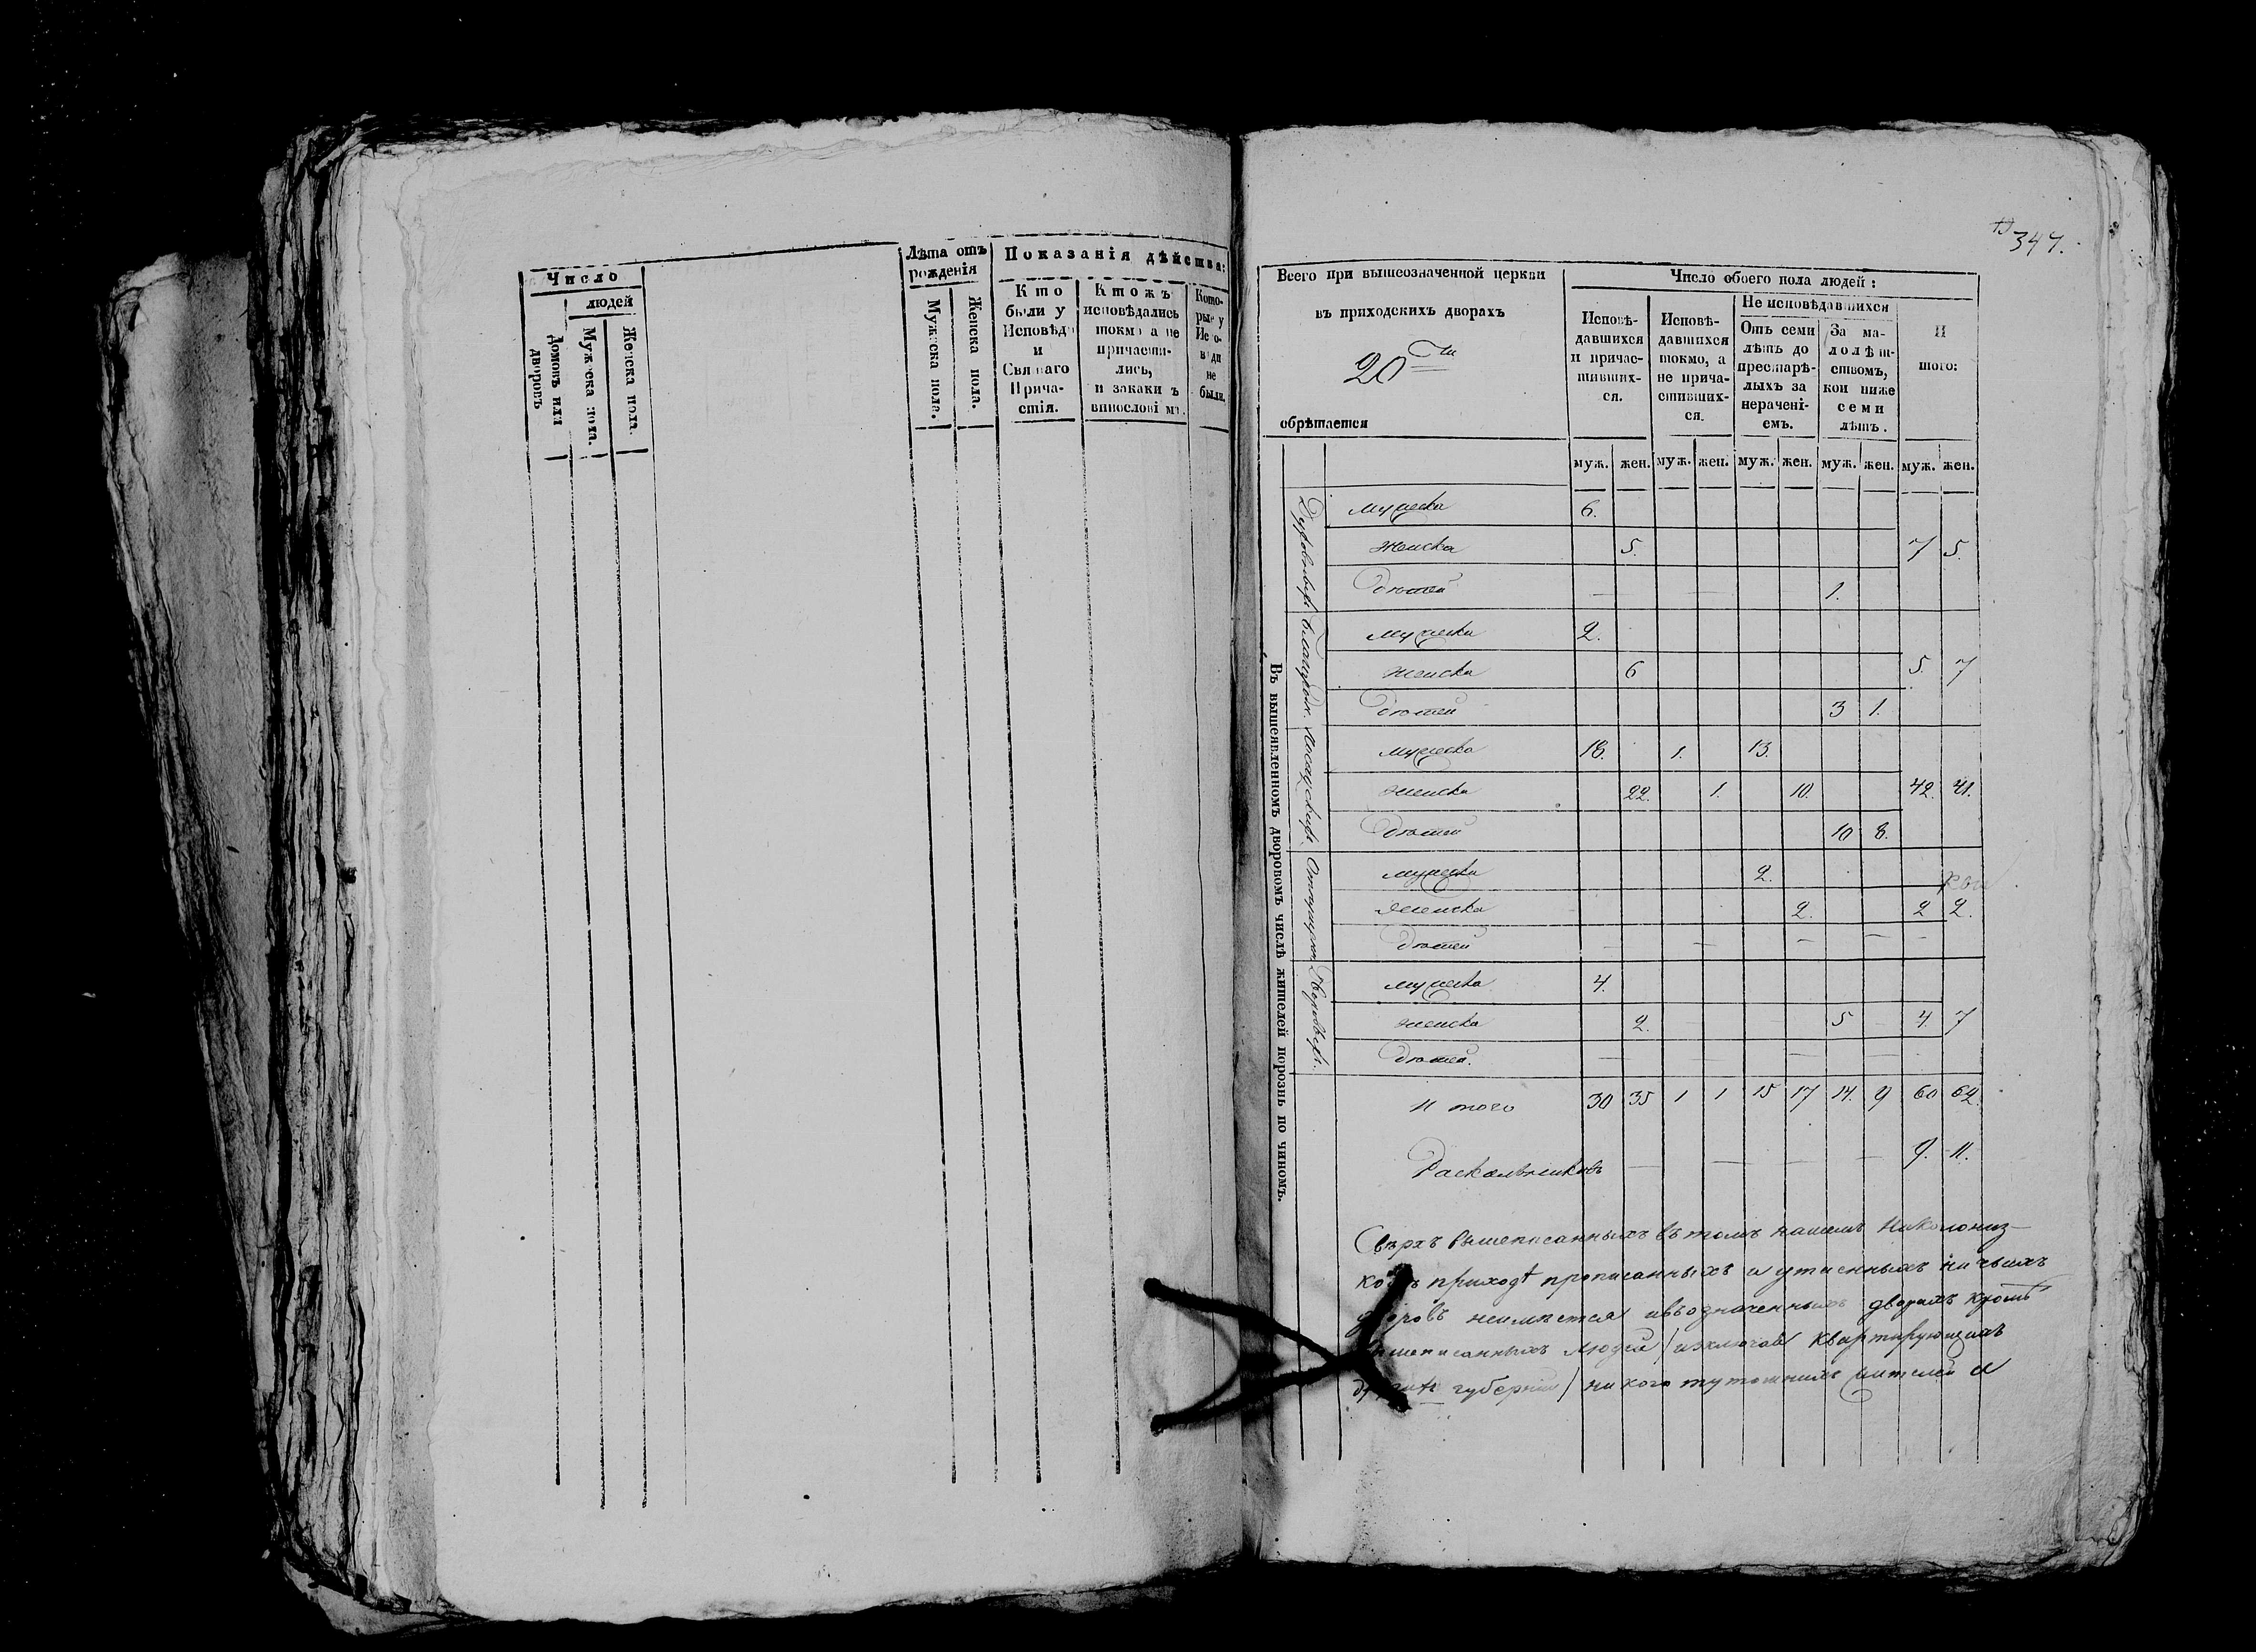 Число
людей
Домовъ или дворовъ
Мужеска пола.
Женска пола.
Лѣта отъ рожденія
Мужеска пола.
Женска пола.
Показанія дѣйства:
Кто
были у
Исповѣди
и
Святаго
Прича-
стія.
Ктожъ
исповѣдались
токмо а не
причасти-
лись,
и закаки ъ
Кото-
рые у
Испо-
вѣди
не
были.
347.
Всего при вышеозначенной церкви
въ приходскихъ дворахъ
20ти
обрѣтается
Число обоего пола людей:
Исповѣ-
давшихся
и причас-
тивших-
ся.
Исповѣ-
давшихся
токмо, а
не прича-
стивших-
ся.
Не исповѣдавшихся
Отъ семи
лѣтъ до
престарѣ-
лыхъ за
нерачені-
емъ.
За ма-
лолѣт-
ствомъ,
кои ниже
семи
лѣтъ.
И
того:
муж. жен. муж. жен. муж. жен. муж. жен. муж. жен.
Въ вышеявленномъ дворовомъ числѣ жителей порознь по чиномъ.
Мужеска 6.
Женска 5. 7 5.
Дѣтей — — 1.
Мужеска 2.
Женска 6 5. 7
Дѣтей 3 1.
Мужеска 18. 1. 13.
Женска 22. 1. 10. 42. 41.
Дѣтей 10 8.
Мужеска 2.
Женска 2. 2 2.
Дѣтей — — — — —
Мужеска 4.
Женска 2. 5 4. 7
Дѣтей. — — —
И того 30 35 1 1 15 17 14. 9 60 62.
Раскольниковъ — — — — 9. 11.
Сверхъ вышеписанныхъ въ томъ нашемъ Николониз-
приходѣ прописанныхъ и утаенныхъ ничьихъ
дворовъ неимѣется ивъозначенныхъ дворахъ кромѣ
вышеписанныхъ людей / изключая квартирующихъ
губерніи / никого тутошнихъ жителей и